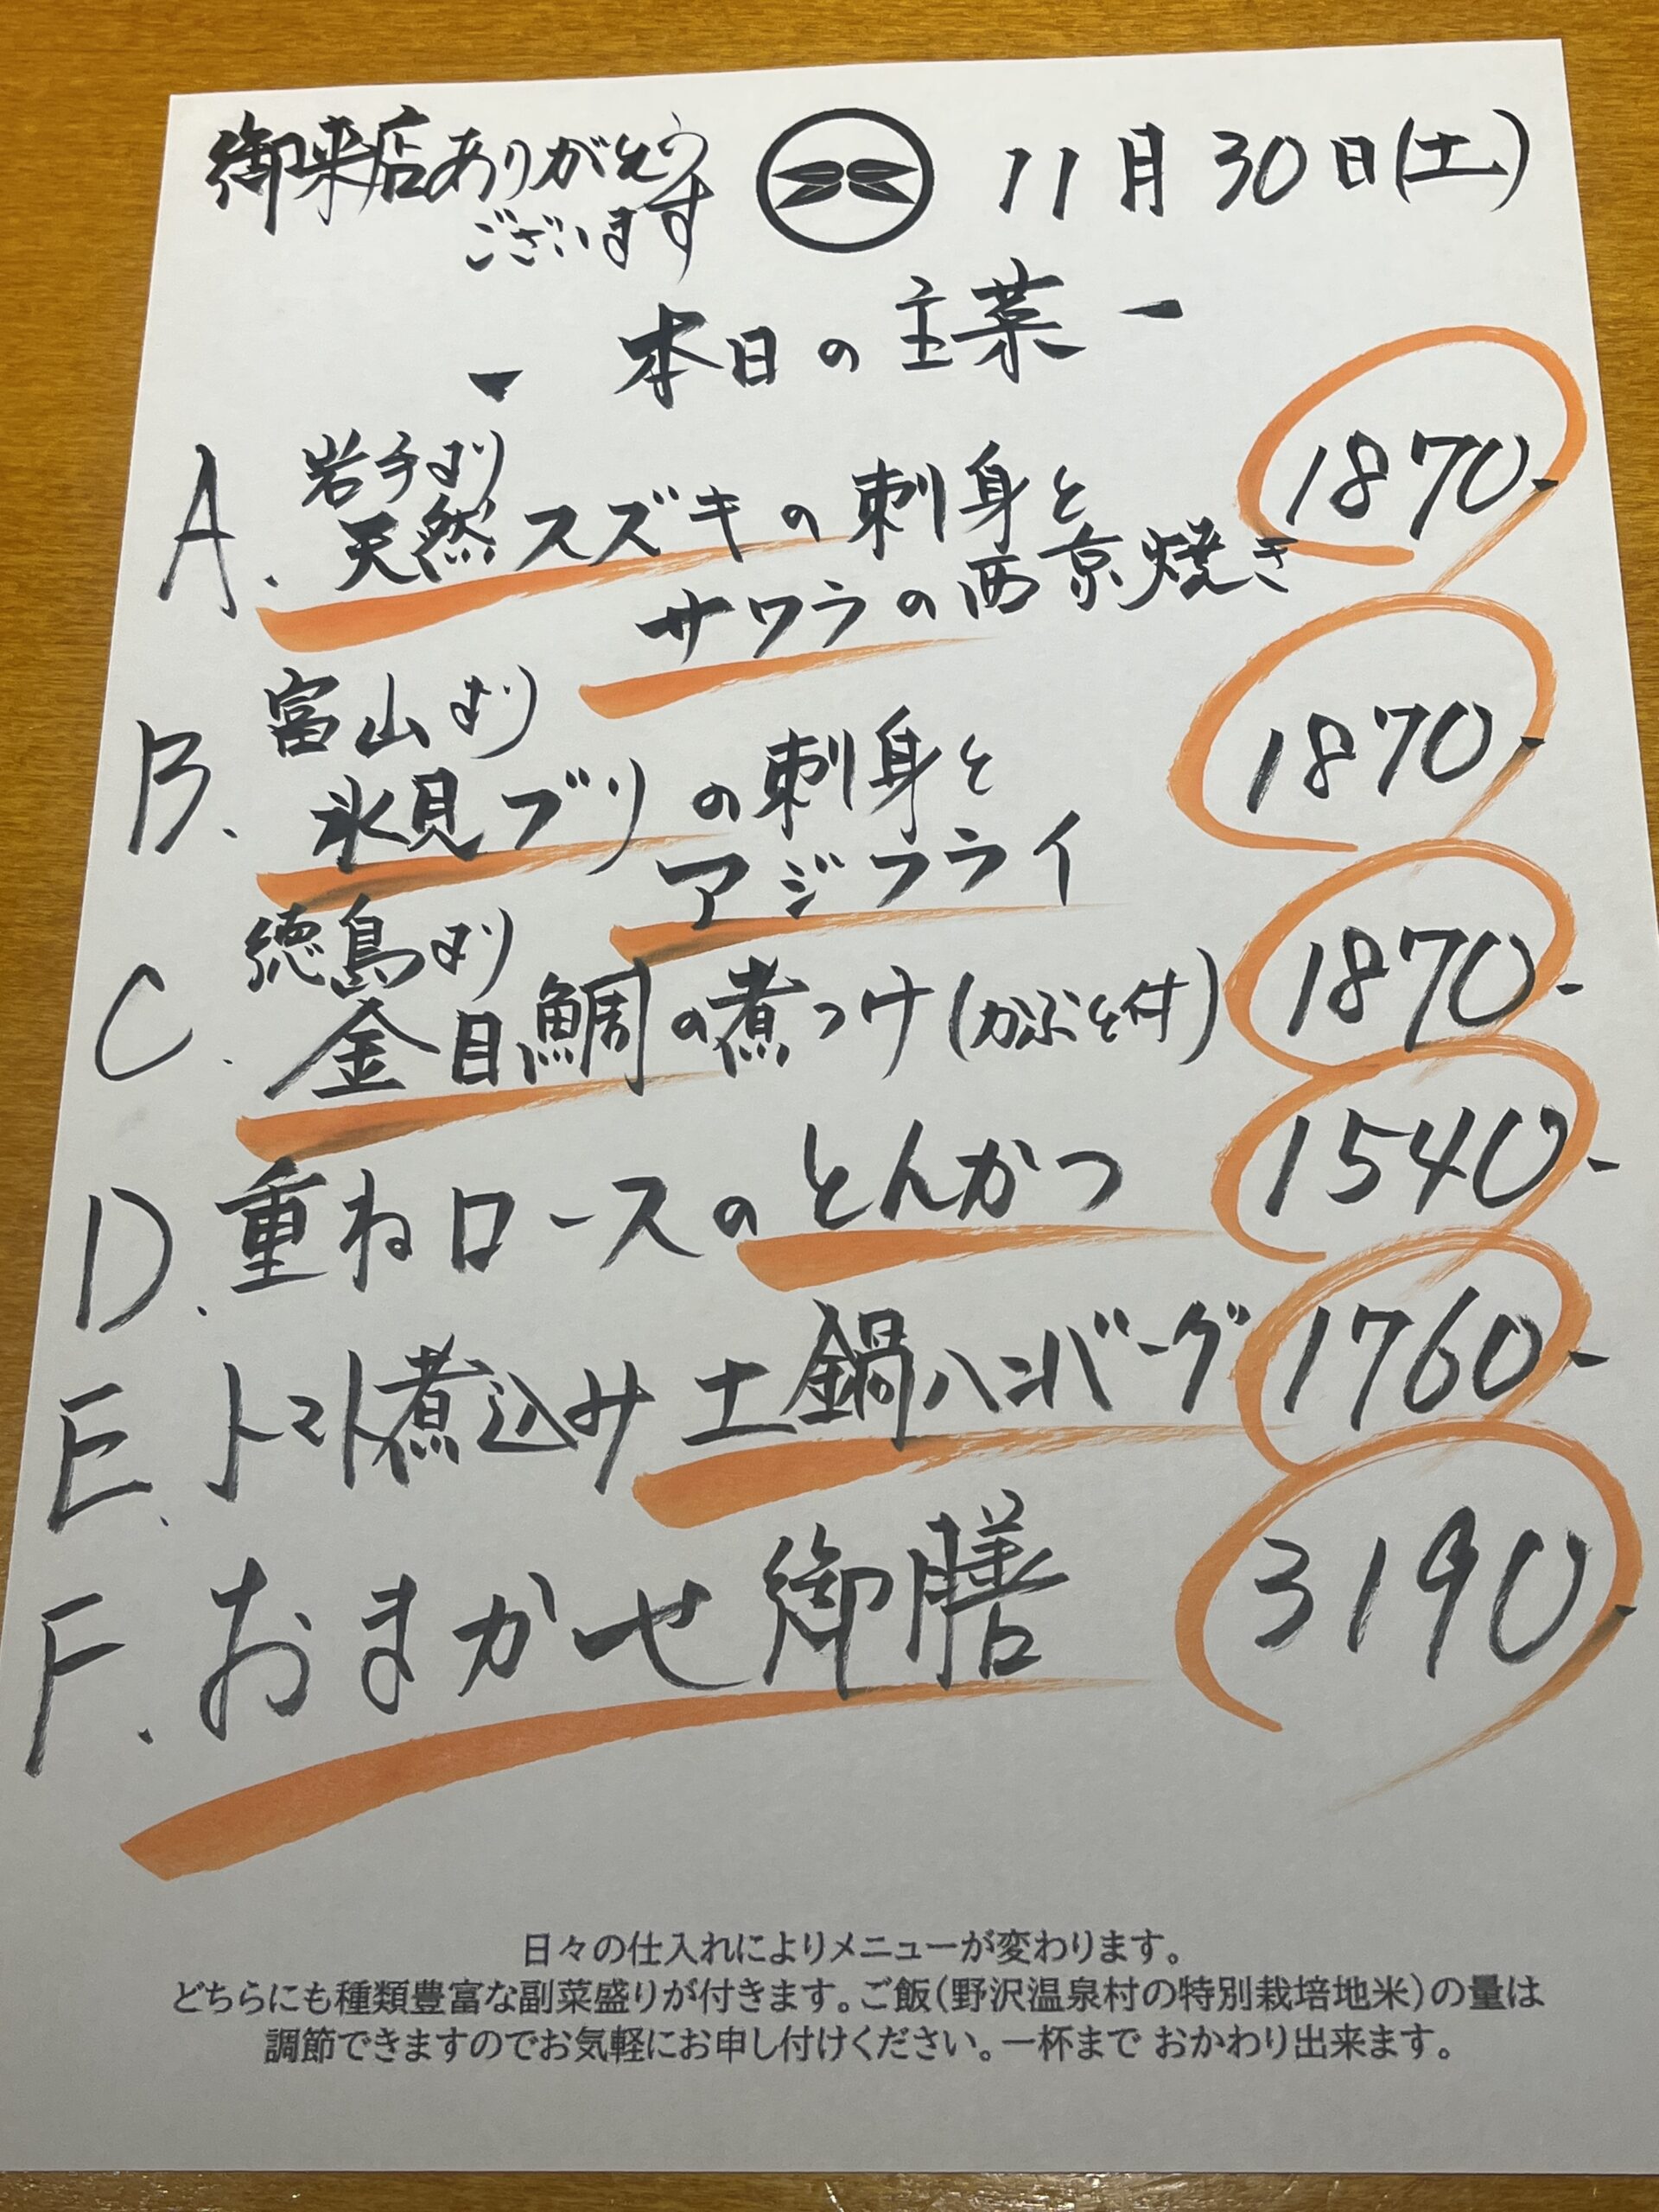 御来店ありがとう
ございます
11月30日(土)
- 本日の主菜 -
A. 岩手より
天然スズキの刺身と
サワラの西京焼き
1870-
B. 富山より
氷見ブリの刺身と
アジフライ
1870-
C. 徳島より
金目鯛の煮つけ(かぶと付)
1870-
D. 重ねロースのとんかつ
1540-
E. トマト煮込み土鍋ハンバーグ
1760-
F. おまかせ御膳
3190-
日々の仕入れによりメニューが変わります。
どちらにも種類豊富な副菜盛りが付きます。ご飯(野沢温泉村の特別栽培地米)の量は
調節できますのでお気軽にお申し付けください。一杯まで おかわり出来ます。